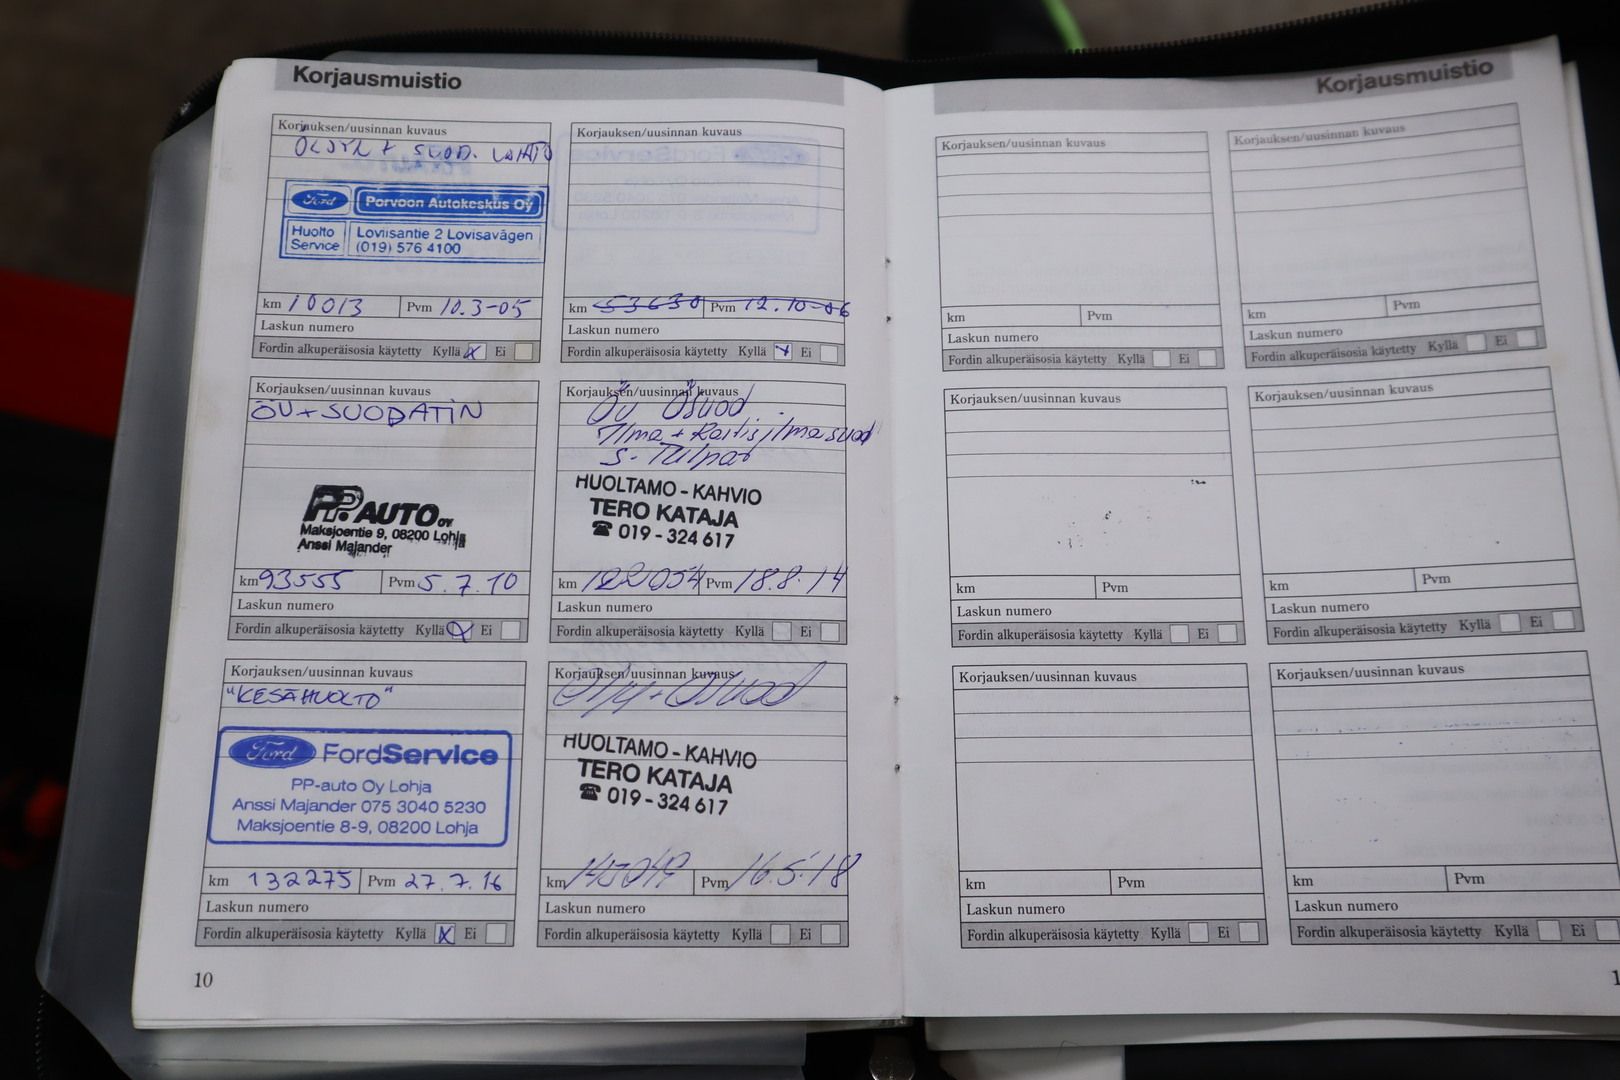 Korjausmuistio
Korjauksen/uusinnan kuvaus
ÖLJYN + SUOD. VAIHTO
Ford
Porvoon Autokeskus Oy
Huolto
Service
Loviisantie 2 Lovisavägen
(019) 576 4100
km 10013 Pvm 10.3-05
Laskun numero
Fordin alkuperäisosia käytetty Kyllä X Ei
Korjauksen/uusinnan kuvaus
km 53630 Pvm 12.10-06
Laskun numero
Fordin alkuperäisosia käytetty Kyllä x Ei
Korjauksen/uusinnan kuvaus
ÖV + SUODATIN
PP. AUTO OY
Maksjoentie 9, 08200 Lohja
Anssi Majander
km 93555 Pvm 5.7.10
Laskun numero
Fordin alkuperäisosia käytetty Kyllä X Ei
Korjauksen/uusinnan kuvaus
Öv Ösuod
Ilma + Raitisilmasuod
S-Tulpat
HUOLTAMO - KAHVIO
TERO KATAJA
☎ 019 - 324 617
km 122054 Pvm 18.8.14
Laskun numero
Fordin alkuperäisosia käytetty Kyllä Ei
Korjauksen/uusinnan kuvaus
"KESÄHUOLTO"
Ford FordService
PP-auto Oy Lohja
Anssi Majander 075 3040 5230
Maksjoentie 8-9, 08200 Lohja
km 132275 Pvm 27.7.16
Laskun numero
Fordin alkuperäisosia käytetty Kyllä X Ei
Korjauksen/uusinnan kuvaus
Ösuod
HUOLTAMO - KAHVIO
TERO KATAJA
☎ 019 - 324 617
km Pvm 16.5.18
Laskun numero
Fordin alkuperäisosia käytetty Kyllä Ei
10
Korjausmuistio
Korjauksen/uusinnan kuvaus
km Pvm
Laskun numero
Fordin alkuperäisosia käytetty Kyllä Ei
Korjauksen/uusinnan kuvaus
km Pvm
Laskun numero
Fordin alkuperäisosia käytetty Kyllä Ei
Korjauksen/uusinnan kuvaus
km Pvm
Laskun numero
Fordin alkuperäisosia käytetty Kyllä Ei
Korjauksen/uusinnan kuvaus
km Pvm
Laskun numero
Fordin alkuperäisosia käytetty Kyllä Ei
Korjauksen/uusinnan kuvaus
km Pvm
Laskun numero
Fordin alkuperäisosia käytetty Kyllä Ei
Korjauksen/uusinnan kuvaus
km Pvm
Laskun numero
Fordin alkuperäisosia käytetty Kyllä Ei